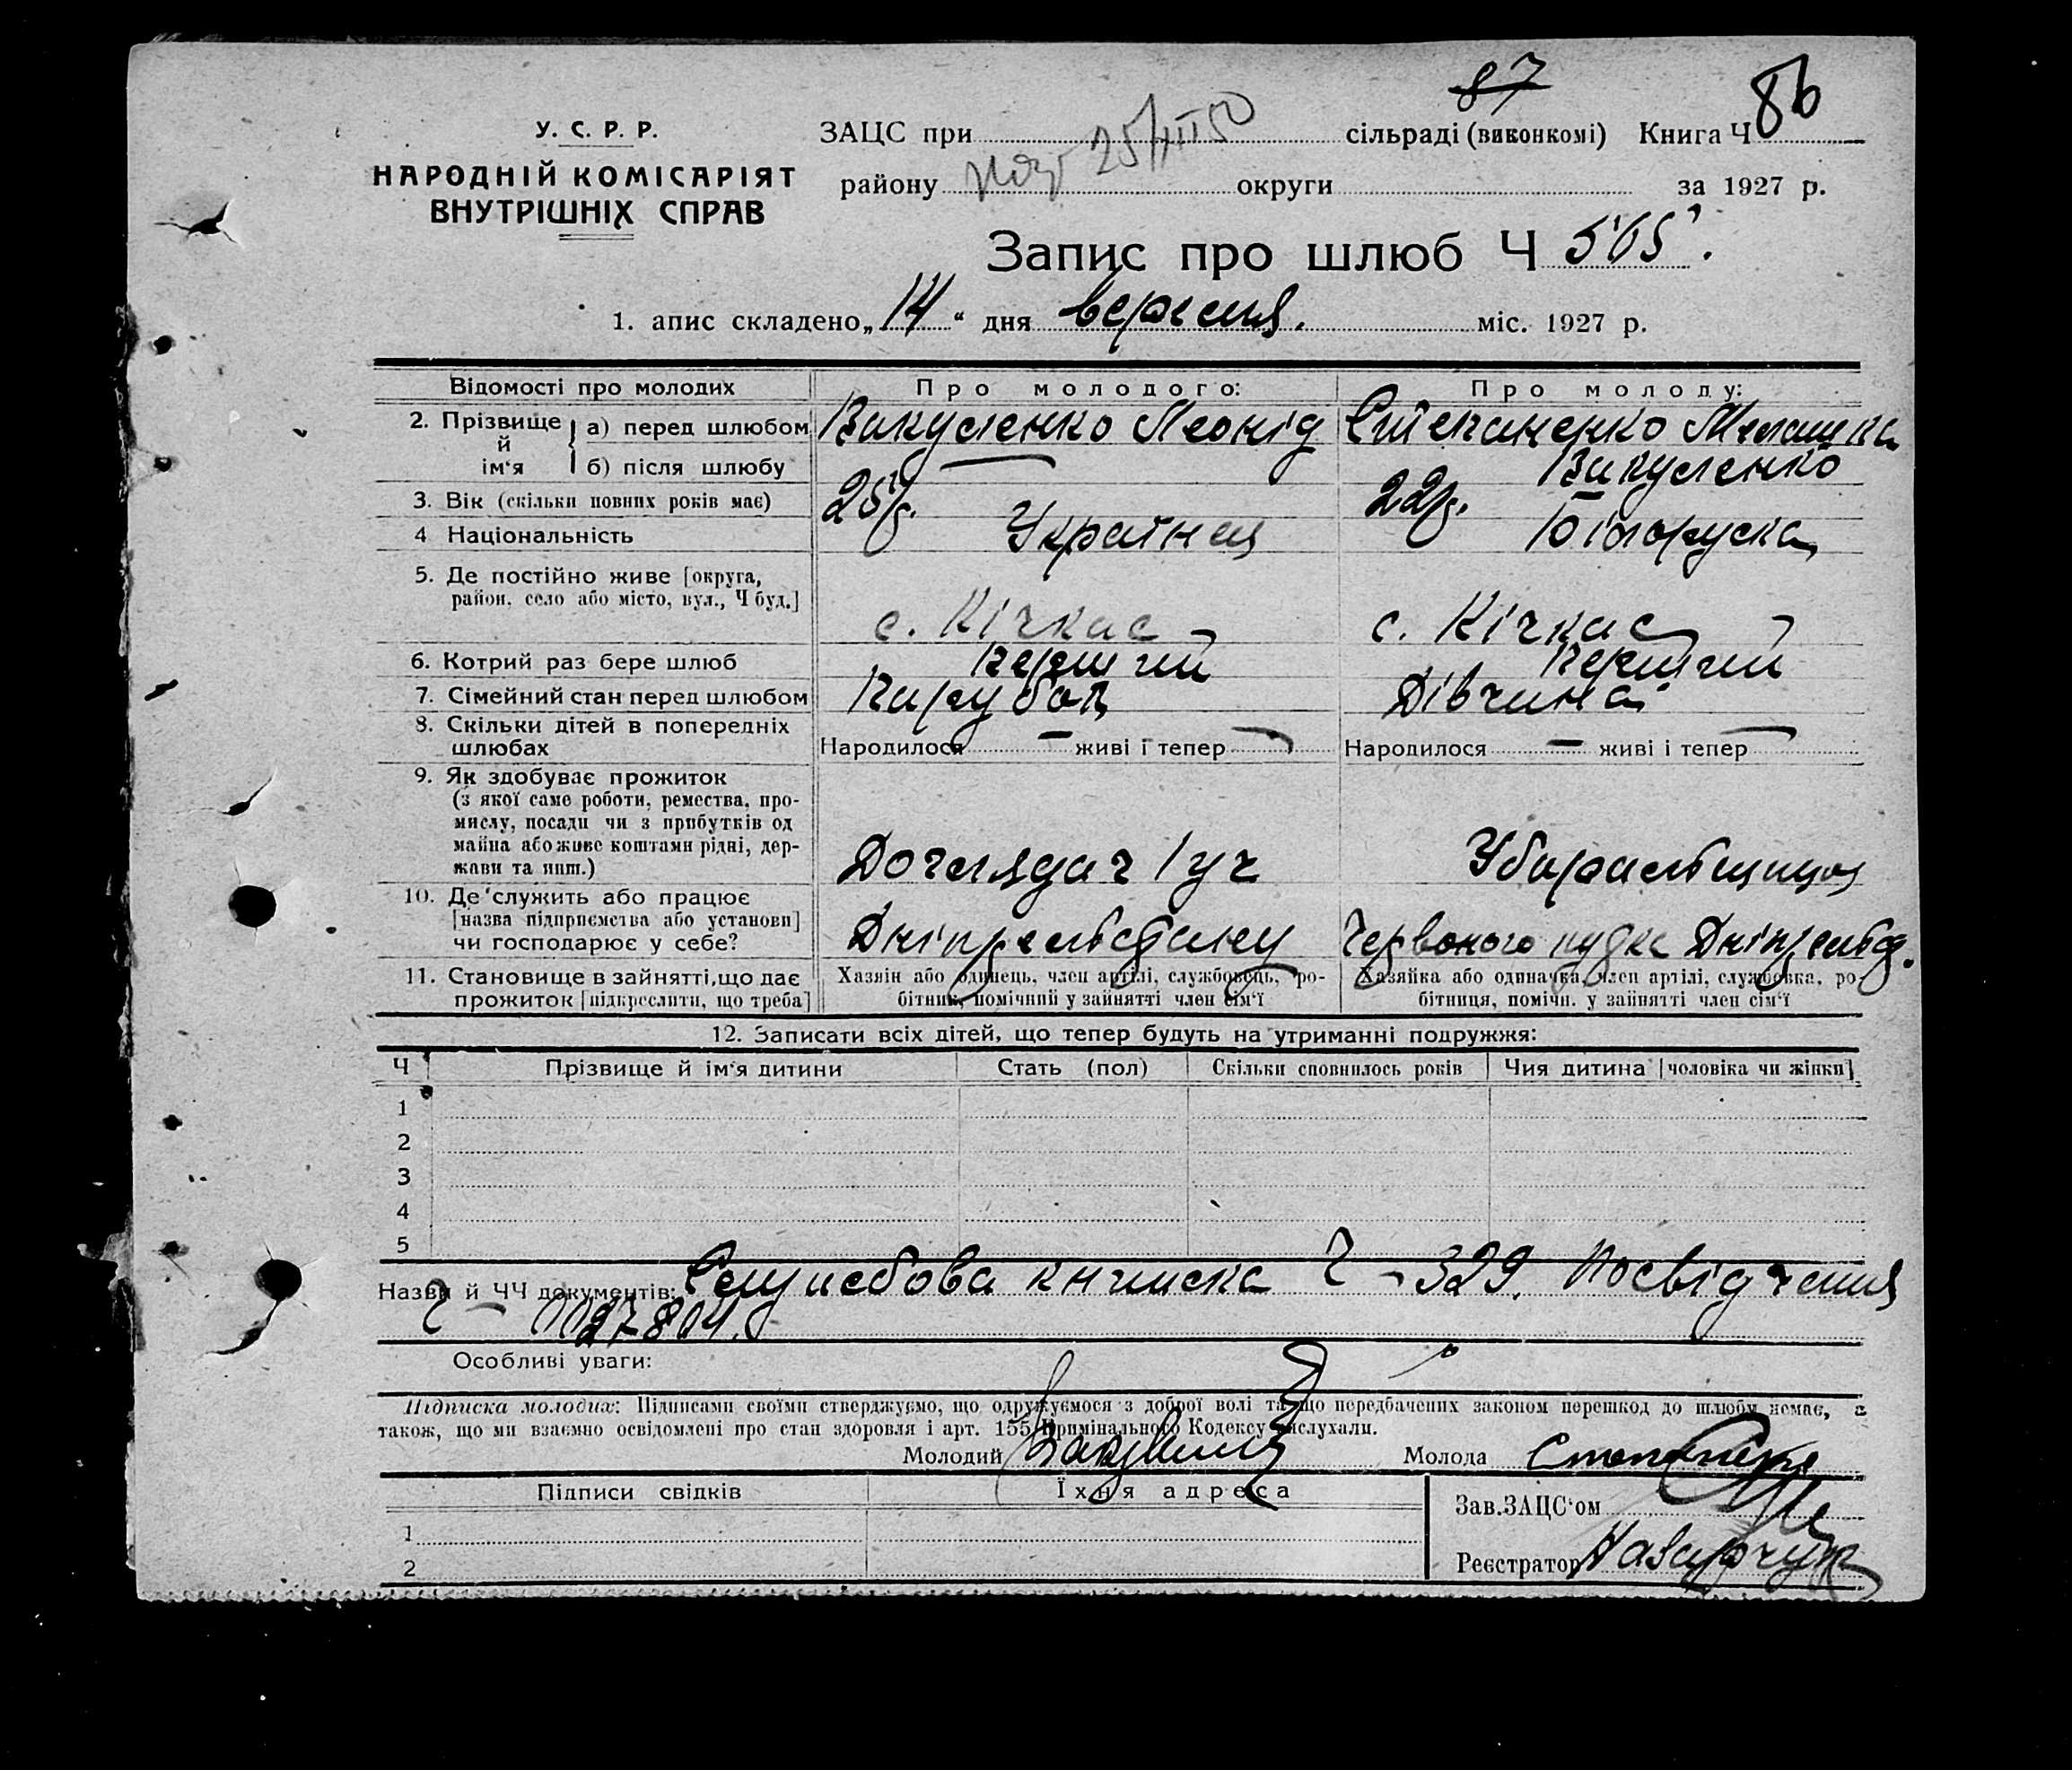 87
86
У. С. Р. Р.
НАРОДНІЙ КОМІСАРІЯТ
ВНУТРІШНІХ СПРАВ
ЗАЦС при сільраді (виконкомі) Книга Ч
району округи за 1927 р.
Запис про шлюб Ч 565.
1. апис складено „14“ дня вересня. міс. 1927 р.
Відомості про молодих Про молодого: Про молоду:
2. Прізвище й ім‘я а) перед шлюбом Вакуленко Леонід Степаненко Мелашка
б) після шлюбу Вакуленко
3. Вік (скільки повних років має) 25р. 22р.
4 Національність Українец Білоруска
5. Де постійно живе [округа,
район, село або місто, вул., Ч буд.]
с. Кічкас с. Кічкас
6. Котрий раз бере шлюб перший перший
7. Сімейний стан перед шлюбом Парубок Дівчина
8. Скільки дітей в попередніх
шлюбах Народилося — живі і тепер — Народилося — живі і тепер —
9. Як здобуває прожиток
(з якої саме роботи, ремества, про-
мислу, посади чи з прибутків од
майна або живе коштами рідні, дер-
жави та инш.) Доглядач Убиральщиця
10. Де служить або працює
[назва підприємства або установи]
чи господарює у себе? Дніпрельстану Червоного Дніпрельст.
11. Становище в зайнятті, що дає
прожиток [підкреслити, що треба]
Хазяін або одинець, член артілі, службовець, ро-
бітник, помічний у зайнятті член сім‘ї
Хазяйка або одиначка, член артілі, службовка, ро-
бітниця, помічн. у зайнятті член сім‘ї
12. Записати всіх дітей, що тепер будуть на утриманні подружжя:
Ч Прізвище й ім‘я дитини Стать (пол) Скільки сповнилось років Чия дитина [чоловіка чи жінки]
1
2
3
4
5
Назви й ЧЧ документів: Службова книжка Ч - 329. Посвідчення
Ч - 0027804.
Особливі уваги:
Підписка молодих: Підписами своїми стверджуємо, що одружуємося з доброї волі та що передбачених законом перешкод до шлюбу немає, а
також, що ми взаємно освідомлені про стан здоровля і арт. 155 Кримінального Кодексу вислухали.
Молодий Молода
Підписи свідків Їхня адреса
Зав.ЗАЦС‘ом
1
Реєстратор
2